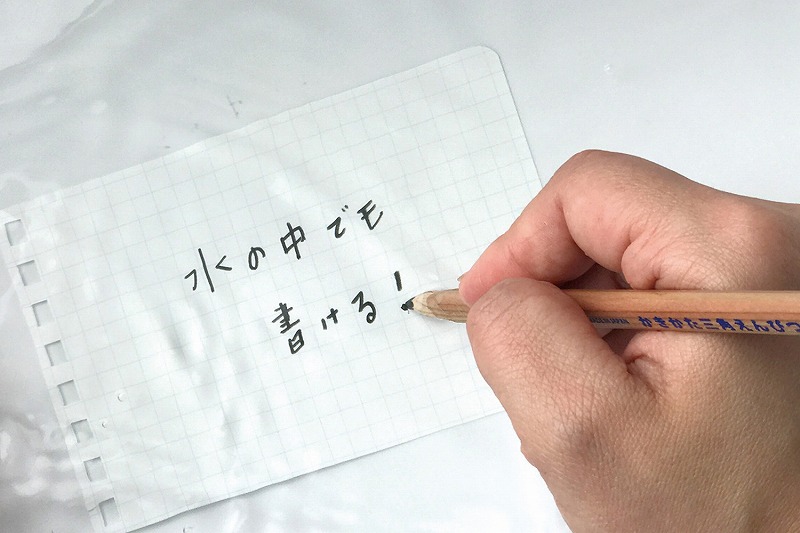 水の中でも
書ける!
かきかた三角えんぴつ